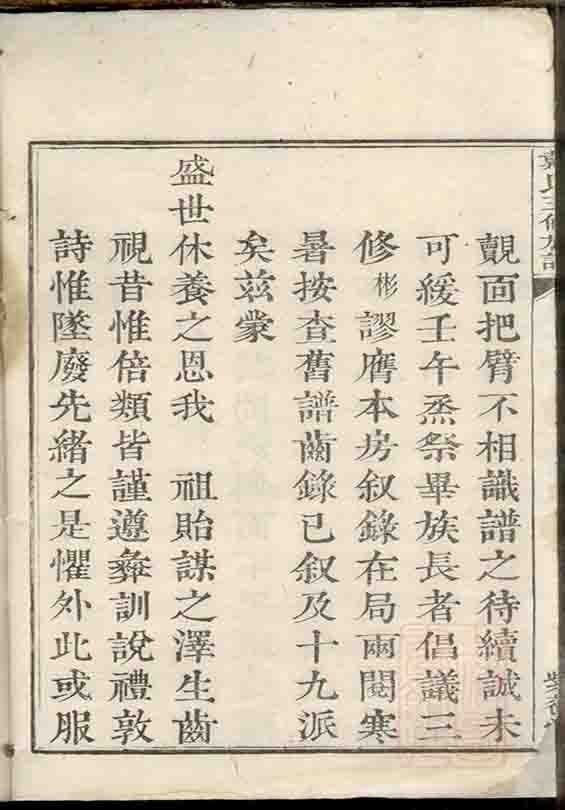 覿面把臂不相識譜之待續誠未
可緩壬午烝祭畢族長者倡議三
修彬謬膺本房叙錄在局兩閱寒
暑按查舊譜齒錄已叙及十九派
矣茲蒙
盛世休養之恩我 祖貽謀之澤生齒
視昔惟倍類皆謹遵彝訓說禮敦
詩惟墜廢先緒之是懼外此或服